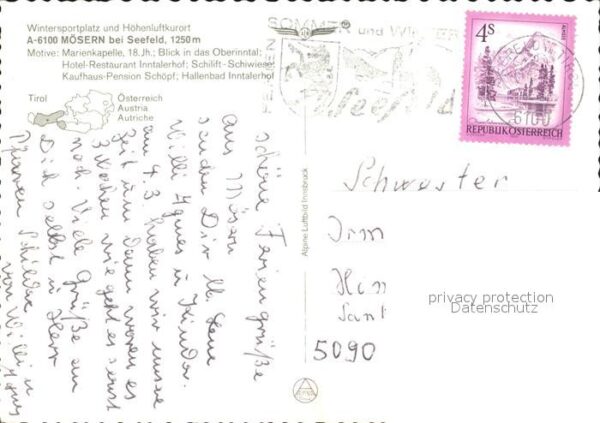 Wintersportplatz und Höhenluftkurort
A-6100 MÖSERN bei Seefeld, 1250 m
Motive: Marienkapelle, 18. Jh.; Blick in das Oberinntal;
Hotel-Restaurant Inntalerhof; Schilift-Schiwiese
Kaufhaus-Pension Schöpf; Hallenbad Inntalerhof
Tirol
Österreich
Austria
Autriche
SOMMER und WINTER
FERIEN
Seefeld
6100
4S
REPUBLIK ÖSTERREICH
schöne Feriengrüße
aus Mösern
senden Dir
Willi Agnes u. Kinder.
am 4.3. haben wir unsere
Zeit um dann waren es
3 Wochen wie geht es sonst
noch. Viele Grüße an
Dich selbst u. Herr
Pfarrer Schilder
von Willi u
Agnes
Alpine Luftbild Innsbruck
Schwester
Irm
5090
privacy protection
Datenschutz